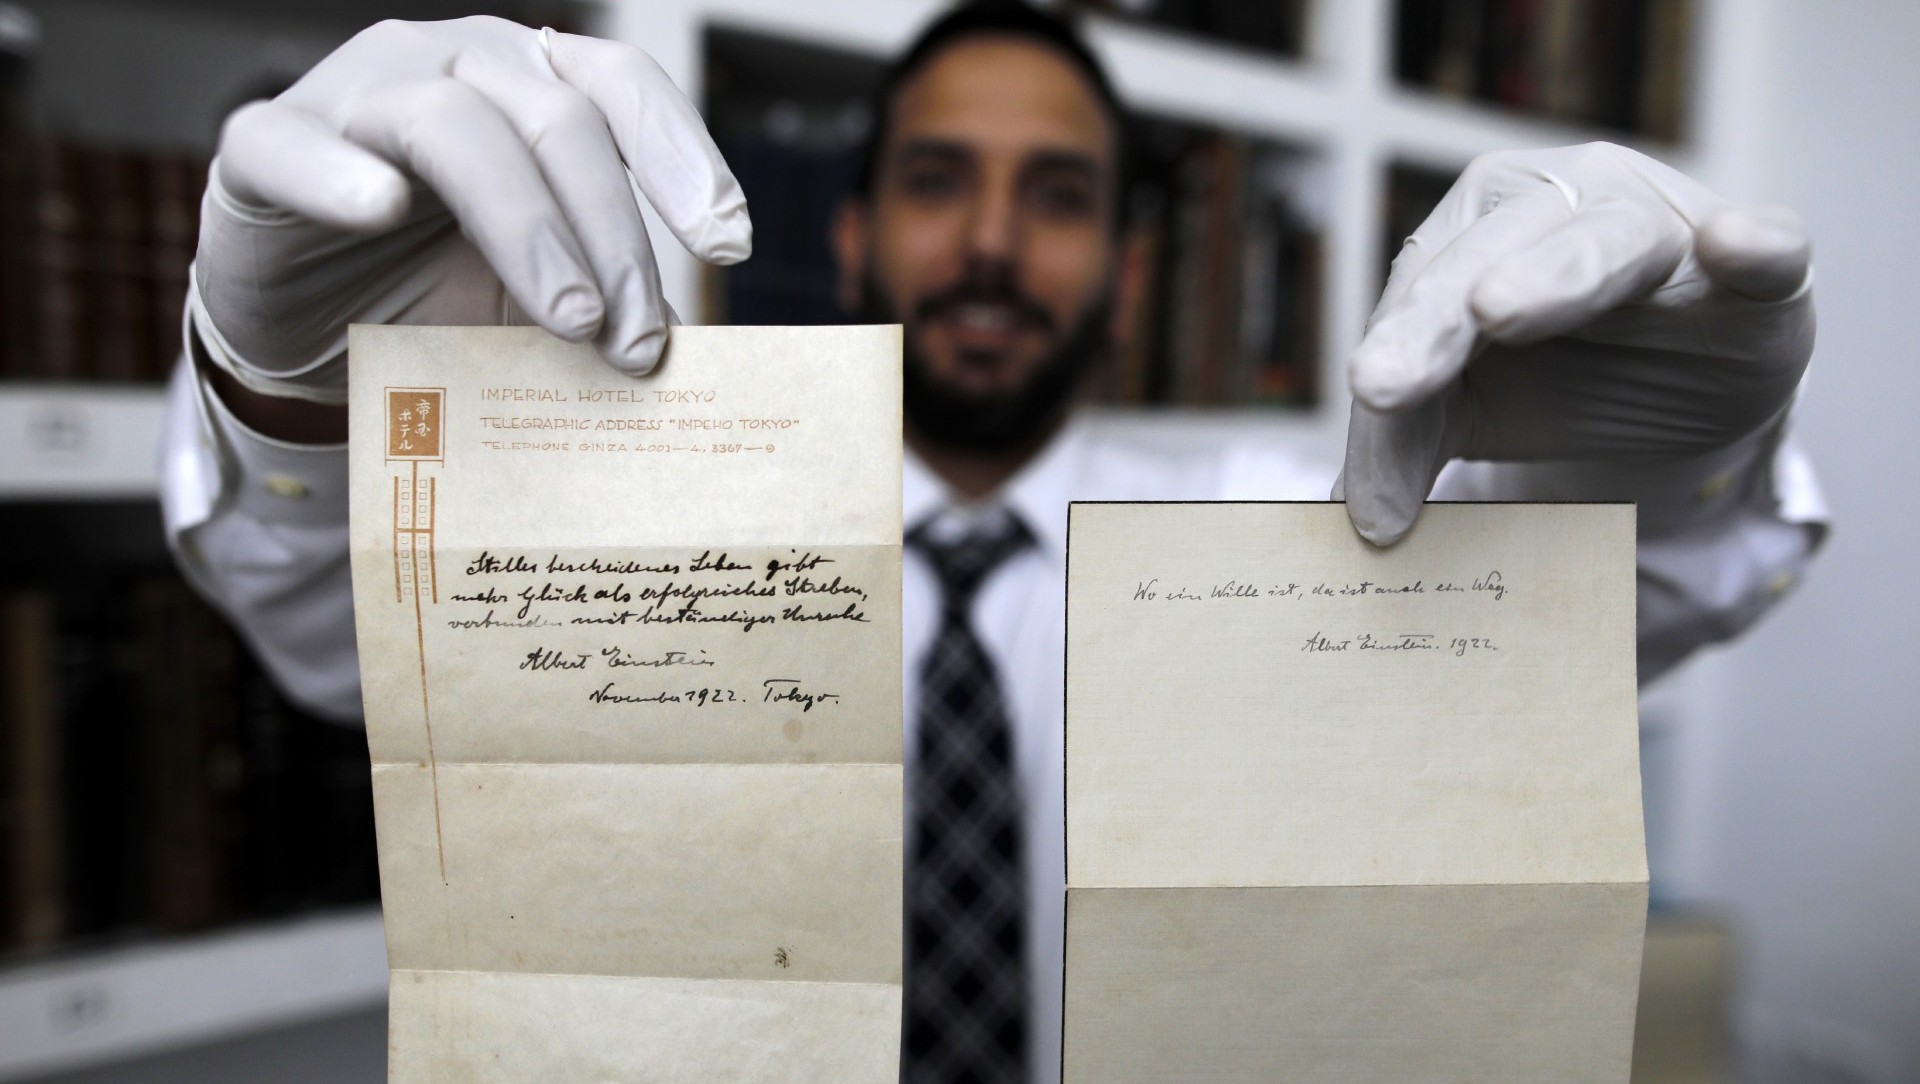 帝国
ホテル
IMPERIAL HOTEL TOKYO
TELEGRAPHIC ADDRESS "IMPEHO TOKYO"
TELEPHONE GINZA 4001—4, 3367—9
Stilles bescheidenes Leben gibt
mehr Glück als erfolgreiches Streben,
verbunden mit beständiger Unruhe
Albert Einstein
November 1922. Tokyo.
Wo ein Wille ist, da ist auch ein Weg.
Albert Einstein. 1922.